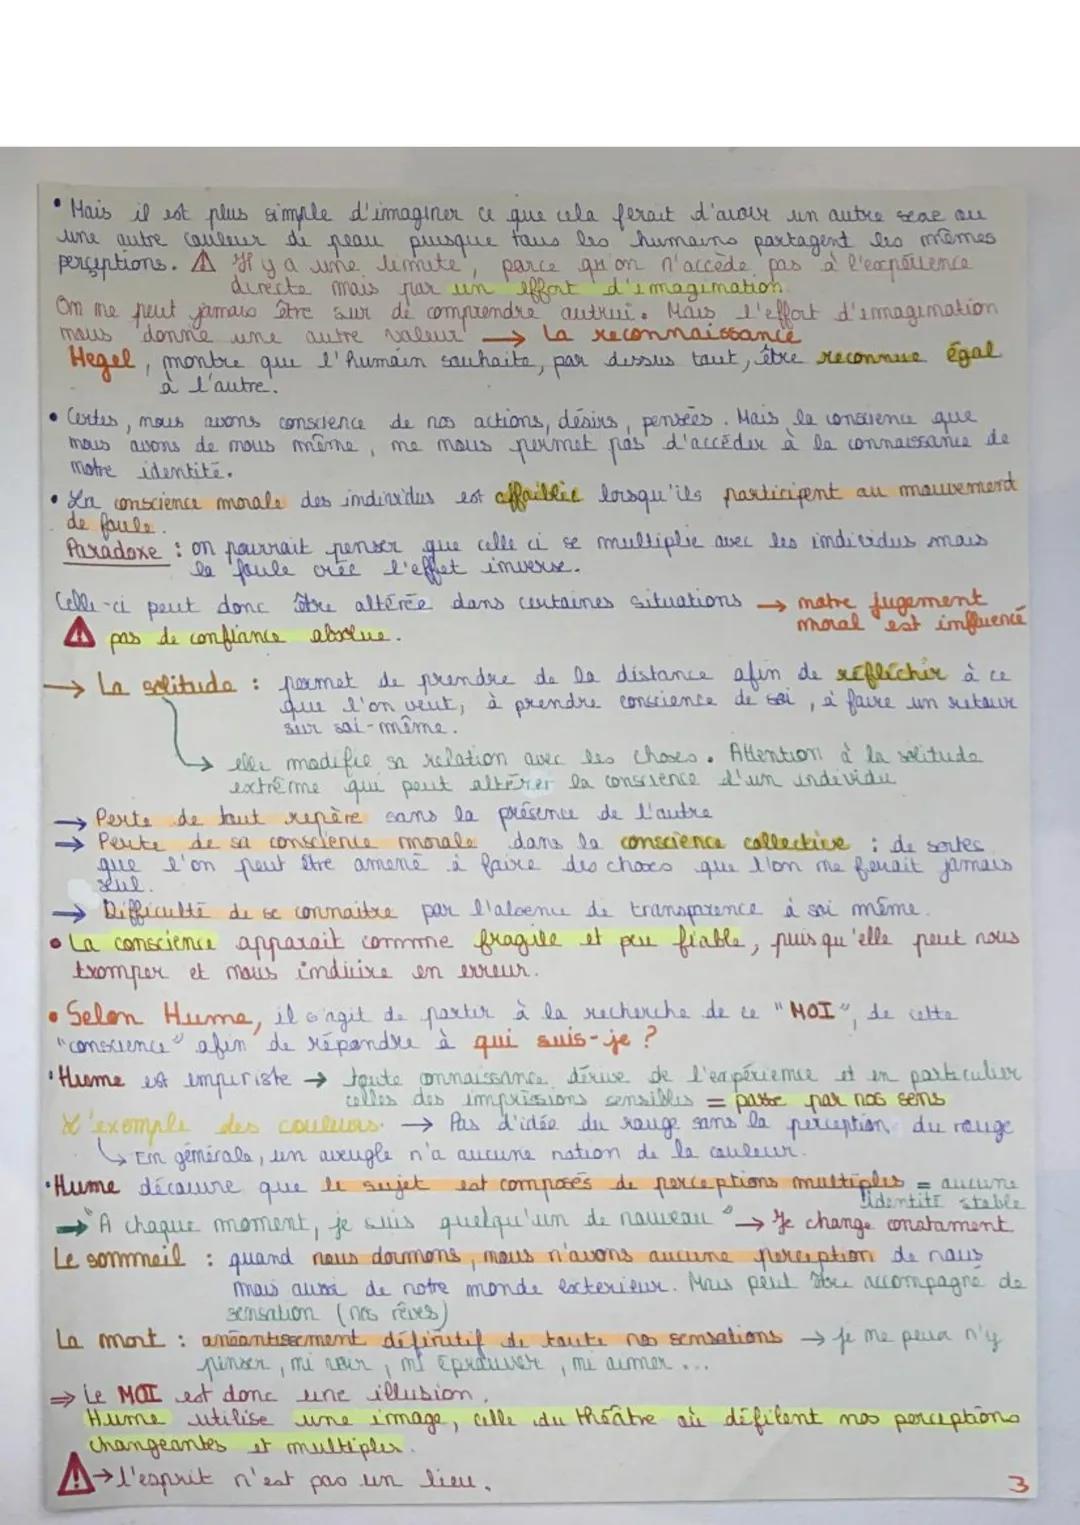 • Mais il est plus simple d'imaginer ce que cela ferait d'avoir un autre sexe ou
une autre couleur de peau puisque tous les humains partagent les mêmes
perceptions. ⚠ Il y a une limite, parce qu'on n'accède pas à l'expérience
directe mais par un effort d'imagination.
On ne peut jamais être sur de comprendre autrui. Mais l'effort d'imagination
nous donne une autre valeur → La reconnaissance
Hegel, montre que l'humain souhaite, par dessus tout, être reconnue égal
à l'autre.
• Certes, nous avons conscience de nos actions, désirs, pensées. Mais la conscience que
nous avons de nous même, ne nous permet pas d'accéder à la connaissance de
notre identité.
• La conscience morale des individus est affaiblie lorsqu'ils participent au mouvement
de foule.
Paradoxe : on pourrait penser que celle ci se multiplie avec les individus mais
la foule crée l'effet inverse.
Celle-ci peut donc être altérée dans certaines situations → notre jugement
moral est influencé
⚠ pas de confiance absolue.
→ La solitude : permet de prendre de la distance afin de réfléchir à ce
que l'on veut, à prendre conscience de soi, à faire un retour
sur soi-même.
→ elle modifie sa relation avec les choses. Attention à la solitude
extrême qui peut altérer la conscience d'un individu
→ Perte de tout repère sans la présence de l'autre
→ Perte de sa conscience morale dans la conscience collective : de sortes
que l'on peut être amené à faire des choses que l'on ne ferait jamais
seul.
→ Difficulté de se connaitre par l'absence de transparence à soi même.
• La conscience apparait comme fragile et peu fiable, puisqu'elle peut nous
tromper et nous induire en erreur.
• Selon Hume, il s'agit de partir à la recherche de ce "MOI", de cette
"conscience" afin de répondre à qui suis-je ?
• Hume est empiriste → toute connaissance dérive de l'expérience et en particulier
celles des impressions sensibles = passe par nos sens
L'exemple des couleurs. → Pas d'idée du rouge sans la perception du rouge
↳ En générale, un aveugle n'a aucune notion de la couleur.
• Hume découvre que le sujet est composés de perceptions multiples = aucune
identité stable
→ "A chaque moment, je suis quelqu'un de nouveau" → Je change constament
Le sommeil : quand nous dormons, nous n'avons aucune perception de nous
mais aussi de notre monde exterieur. Mais peut être accompagné de
sensation (nos rêves)
La mort : anéantissement définitif de toute nos sensations → je ne peux n'y
penser, ni voir, ni éprouver, ni aimer ...
⇒ Le MOI est donc une illusion.
Hume utilise une image, celle du théâtre où défilent nos perceptions
changeantes et multiples.
⚠ → l'esprit n'est pas un lieu.
3